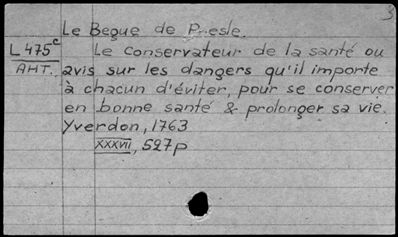 3
Le Begue de Presle.
L475c Le conservateur de la santé ou
AHT. avis sur les dangers qu'il importe
à chacun d'éviter, pour se conserver
en bonne santé & prolonger sa vie.
Yverdon, 1763
XXXVII, 527p